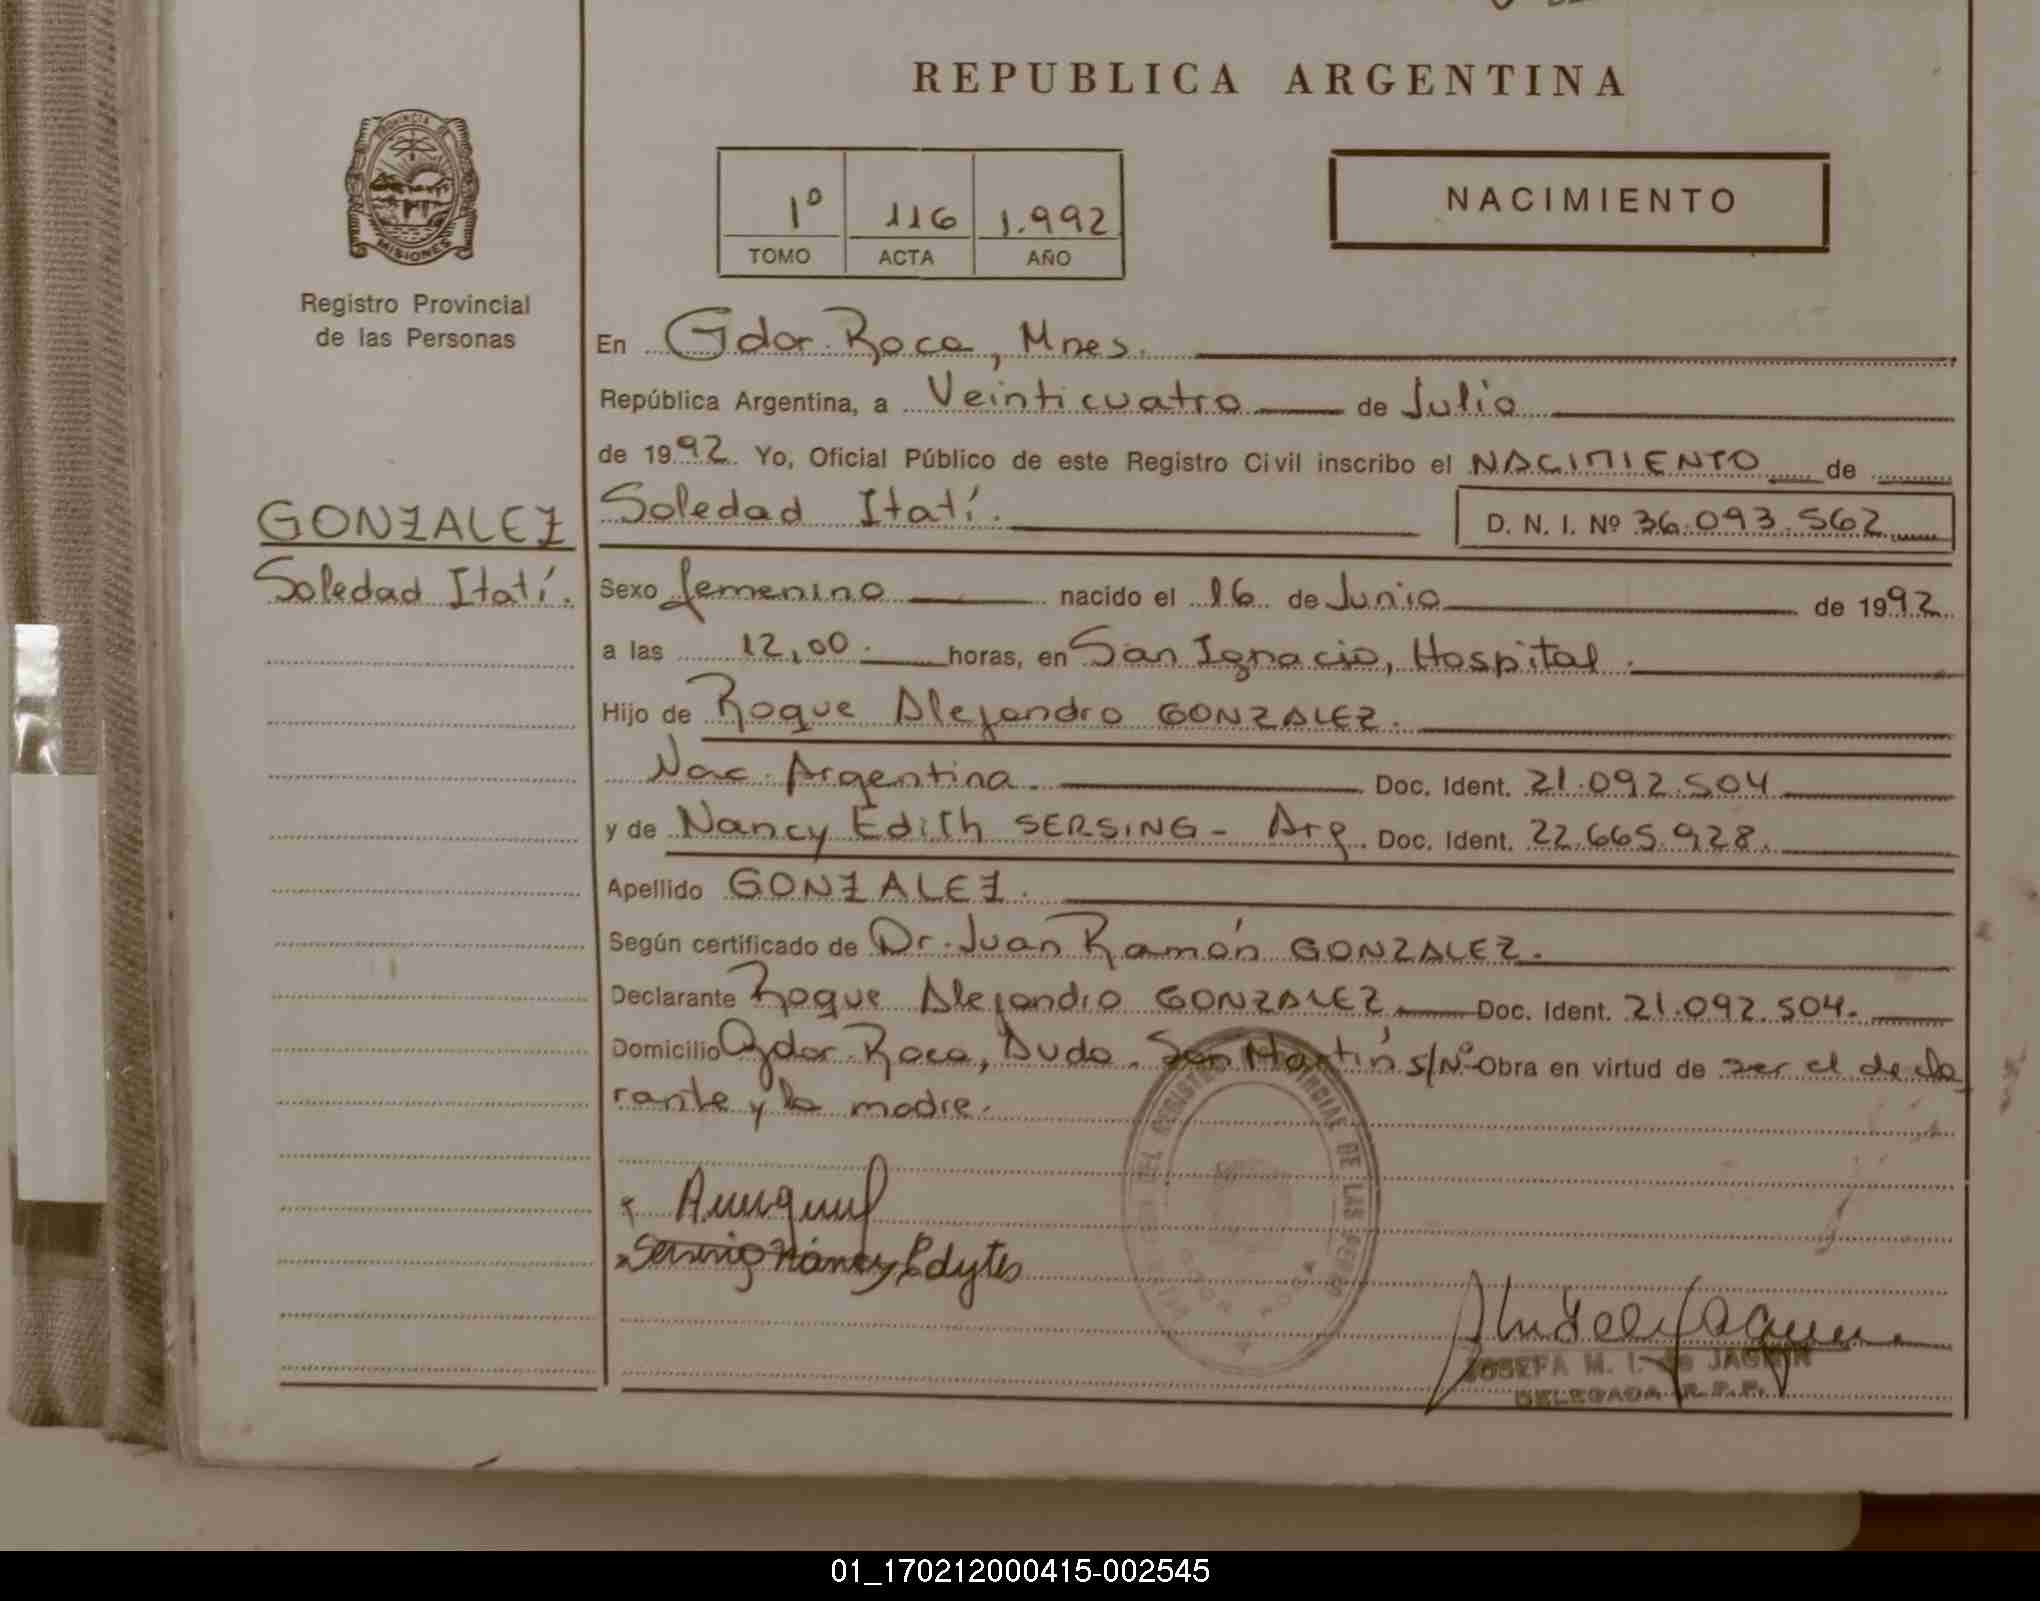 REPUBLICA ARGENTINA
PROVINCIA DE
MISIONES
Registro Provincial
de las Personas
1º 116 1.992
TOMO ACTA AÑO
NACIMIENTO
En Gdor. Roca, Mnes.
República Argentina, a Veinticuatro de Julio
de 1992. Yo, Oficial Público de este Registro Civil inscribo el NACIMIENTO de
GONZALEZ
Soledad Itatí.
Soledad Itatí.
D. N. I. Nº 36.093.562
Sexo femenino nacido el 16 de Junio de 1992
a las 12,00. horas, en San Ignacio, Hospital.
Hijo de Roque Alejandro GONZALEZ.
Nac. Argentina. Doc. Ident. 21.092.504
y de Nancy Edith SERSING - Arg. Doc. Ident. 22.665.928.
Apellido GONZALEZ.
Según certificado de Dr. Juan Ramón GONZALEZ.
Declarante Roque Alejandro GONZALEZ Doc. Ident. 21.092.504.
Domicilio Gdor. Roca, Avda. San Martín s/Nº Obra en virtud de ser el decla
rante y la madre.
Sersing Nancy Edyts
JOSEFA M. I. de JACQUIN
DELEGADA R. P. P.
01_170212000415-002545